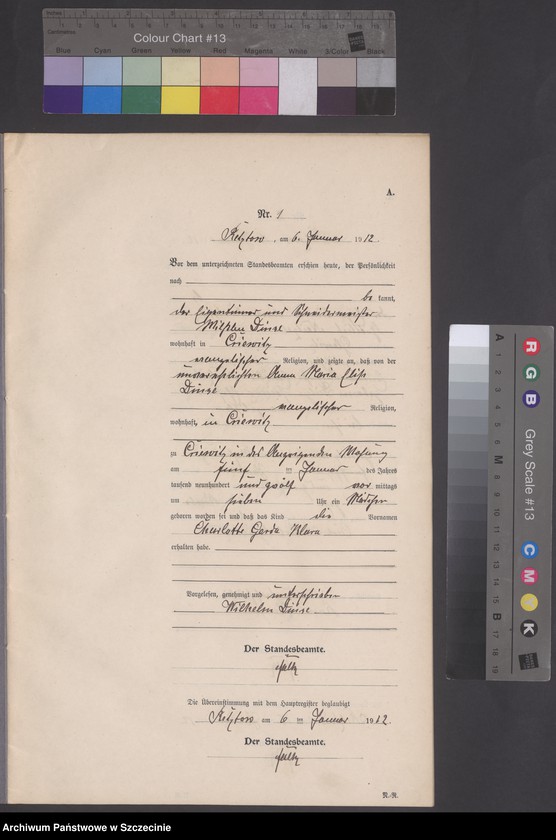 Colour Chart #13
Blue Cyan Green Yellow Red Magenta White 3/Color Black
A.
Nr. 1
am 6. Januar 1912.
Vor dem unterzeichneten Standesbeamten erschien heute, der Persönlichkeit
nach
be kannt,
der Eigentümer und Schneidermeister
Wilhelm Dinse
wohnhaft in Criewitz
evangelischer Religion, und zeigte an, daß von der
unverehelichten Anna Maria Elise
Dinse
evangelischer Religion,
wohnhaft in Criewitz
zu Criewitz in des Anzeigenden Wohnung
am fünf ten Januar des Jahres
tausend neunhundert und zwölf vor mittags
um sieben Uhr ein Mädchen
geboren worden sei und daß das Kind die Vornamen
Charlotte Gerda Klara
erhalten habe.
Vorgelesen, genehmigt und unterschrieben
Wilhelm Dinse
Der Standesbeamte.
Die Übereinstimmung mit dem Hauptregister beglaubigt
am 6 ten Januar 1912.
Der Standesbeamte.
R.-R.
Grey Scale #13
R G B
C M Y K
A 1 2 3 4 5 6 M 8 9 10 11 12 13 14 15 B 17 18 19
Archiwum Państwowe w Szczecinie